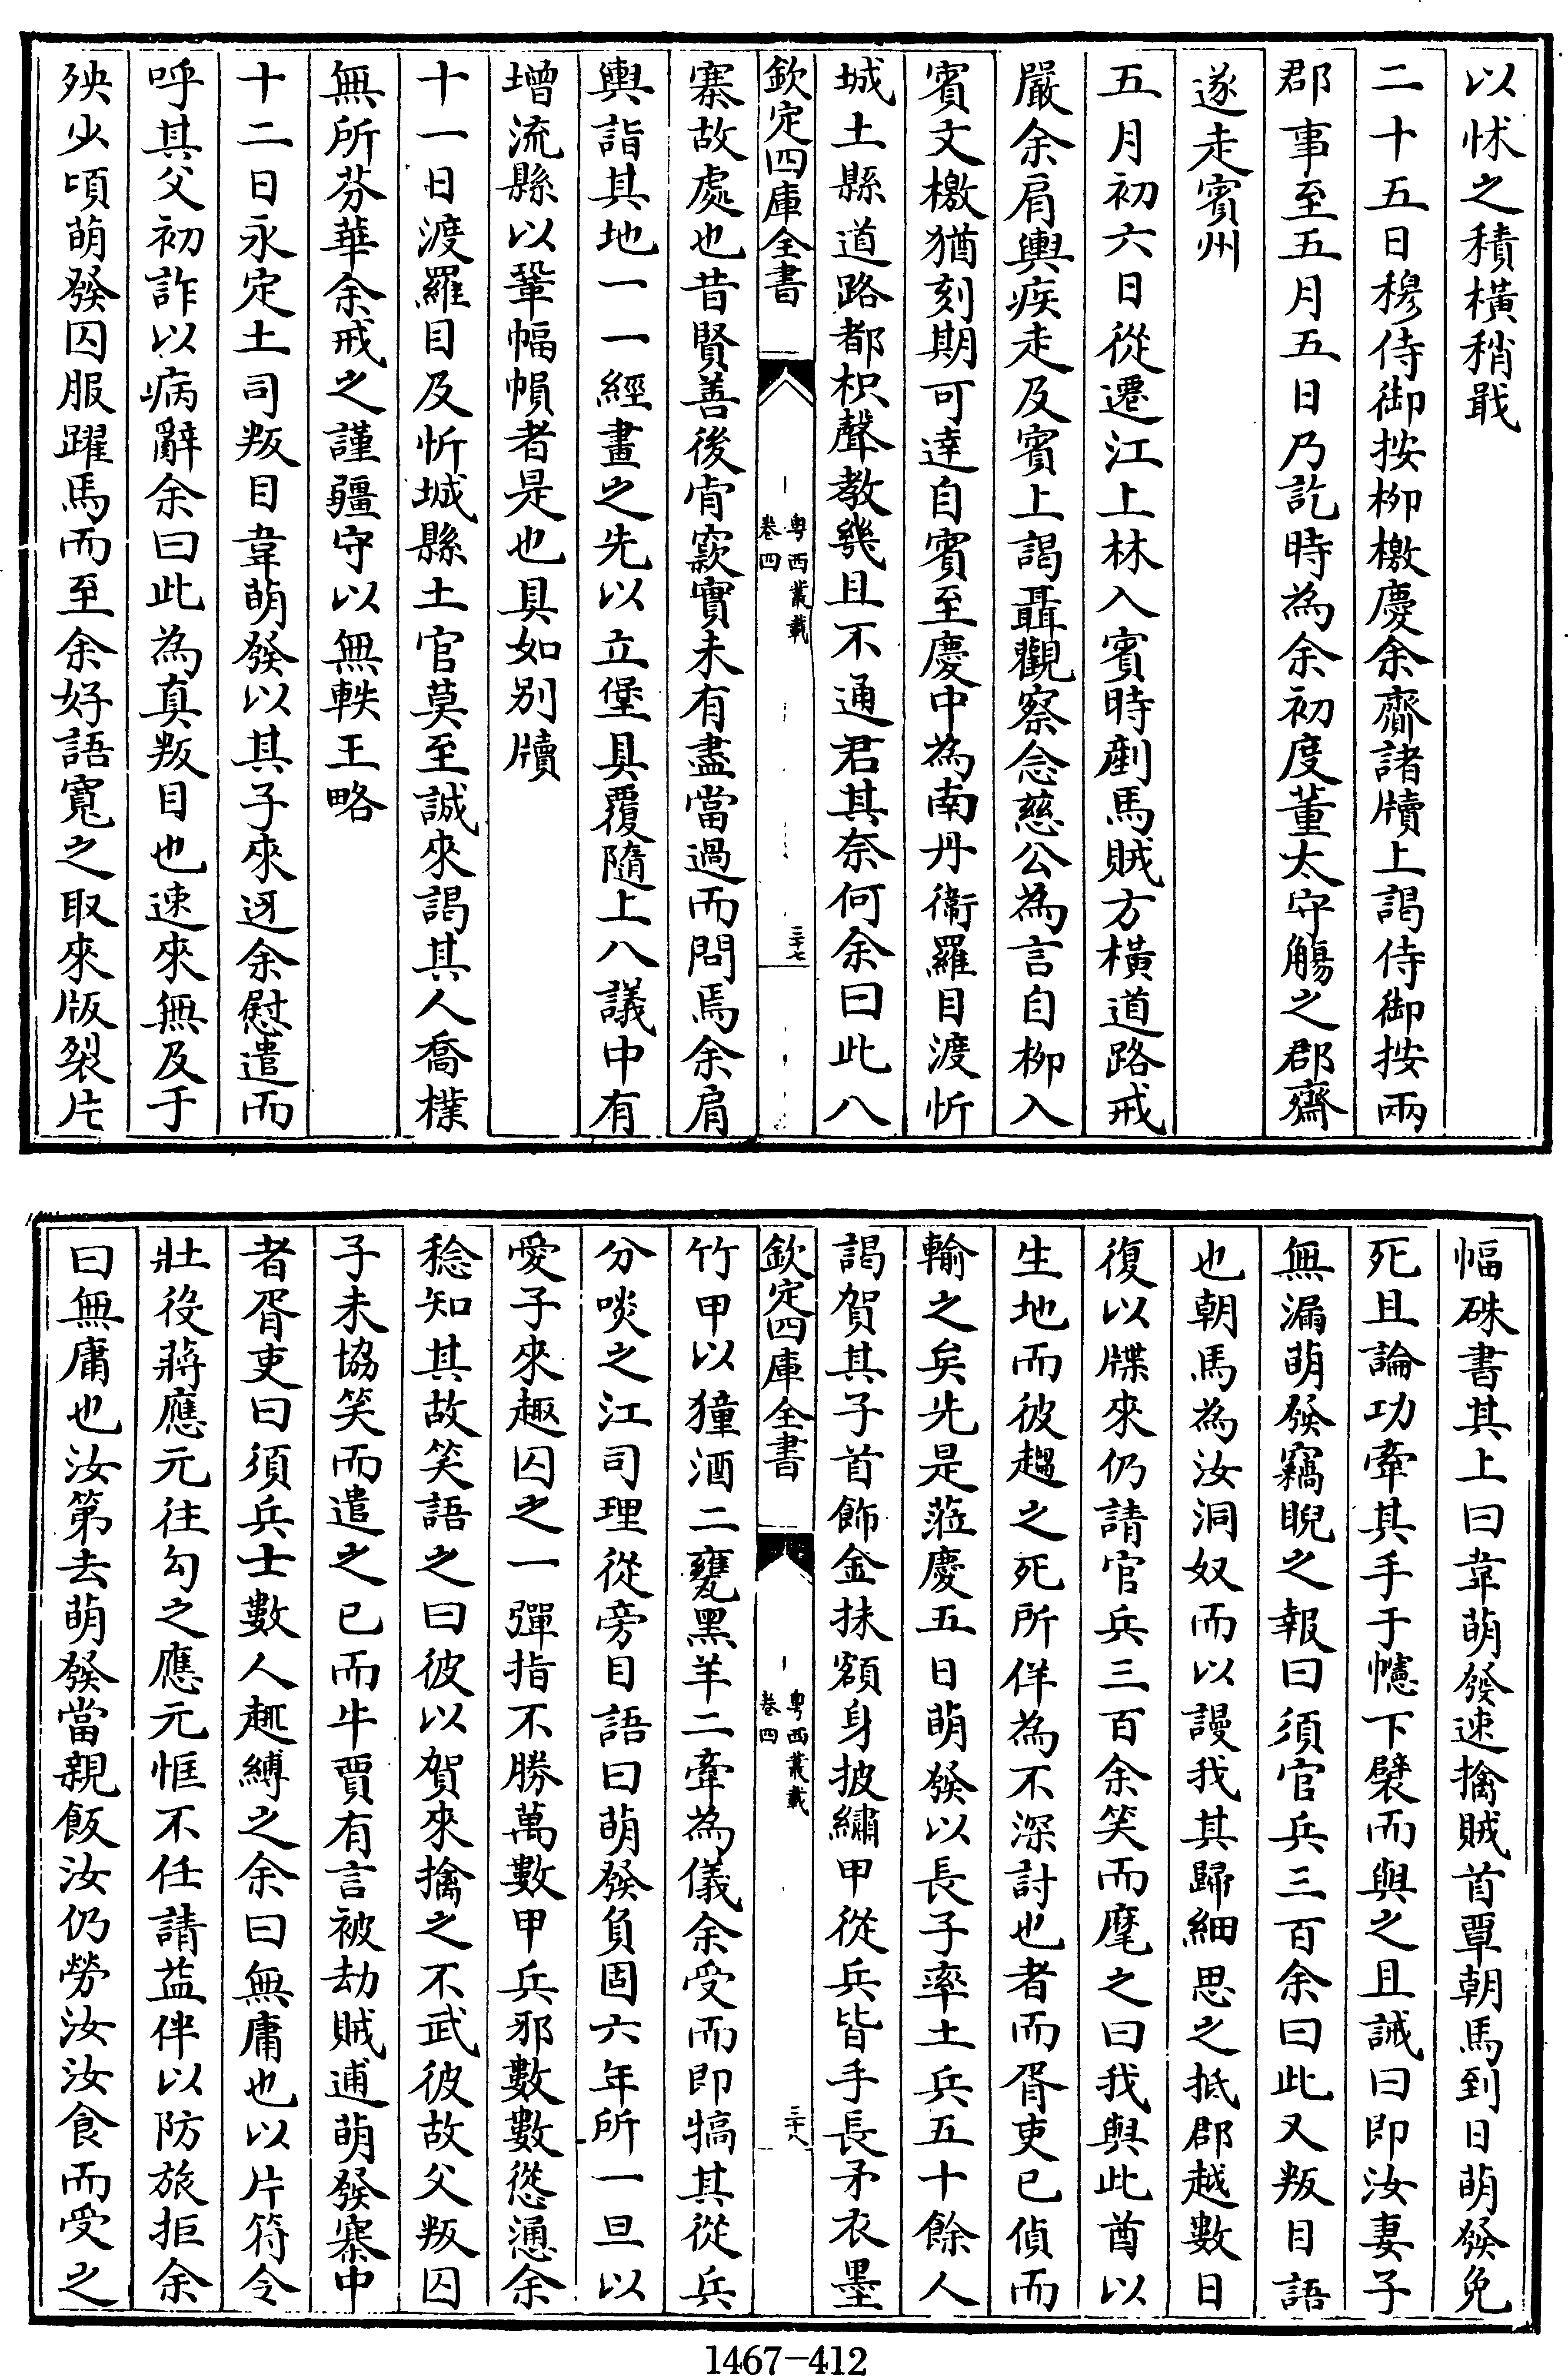 以怵之積橫稍戢
二十五日穆侍御按柳檄慶余齎諸牘上謁侍御按兩
郡事至五月五日乃訖時為余初度董太守觴之郡齋
遂走賓州
五月初六日從遷江上林入賓時劃馬賊方橫道路戒
嚴余肩輿疾走及賓上謁聶觀察念慈公為言自柳入
賓文檄猶刻期可達自賓至慶中為南丹衞羅目渡忻
城土縣道路都枳聲教幾且不通君其奈何余曰此八
欽定四庫全書
粵西叢載
卷四
三十七
寨故處也昔賢善後肯窾實未有盡當過而問焉余肩
輿詣其地一一經畫之先以立堡具覆隨上八議中有
增流縣以鞏幅幀者是也具如别牘
十一日渡羅目及忻城縣土官莫至誠來謁其人喬樸
無所芬華余戒之謹疆守以無軼王略
十二日永定土司叛目韋萌發以其子來迓余慰遣而
呼其父初詐以病辭余曰此為真叛目也速來無及于
殃少頃萌發囚服躍馬而至余好語寬之取來版裂片
幅硃書其上曰韋萌發速擒賊首覃朝馬到日萌發免
死且論功牽其手于幰下襞而與之且誡曰即汝妻子
無漏萌發竊睨之報曰須官兵三百余曰此又叛目語
也朝馬為汝洞奴而以謾我其歸細思之抵郡越數日
復以牒來仍請官兵三百余笑而麾之曰我與此酋以
生地而彼趨之死所佯為不深討也者而胥吏已偵而
輸之矣先是蒞慶五日萌發以長子率土兵五十餘人
謁賀其子首飾金抹額身披繡甲從兵皆手長矛衣墨
欽定四庫全書
粵西叢載
卷四
三十八
竹甲以獞酒二甕黑羊二牽為儀余受而即犒其從兵
分啖之江司理從旁目語曰萌發負固六年所一旦以
愛子來趣囚之一彈指不勝萬數甲兵邪數數慫慂余
稔知其故笑語之曰彼以賀來擒之不武彼故父叛囚
子未協笑而遣之已而牛賈有言被劫賊逋萌發寨中
者胥吏曰須兵士數人趣縛之余曰無庸也以片符令
壯役蔣應元往勾之應元恇不任請益伴以防旅拒余
曰無庸也汝第去萌發當親飯汝仍勞汝汝食而受之
1467-412